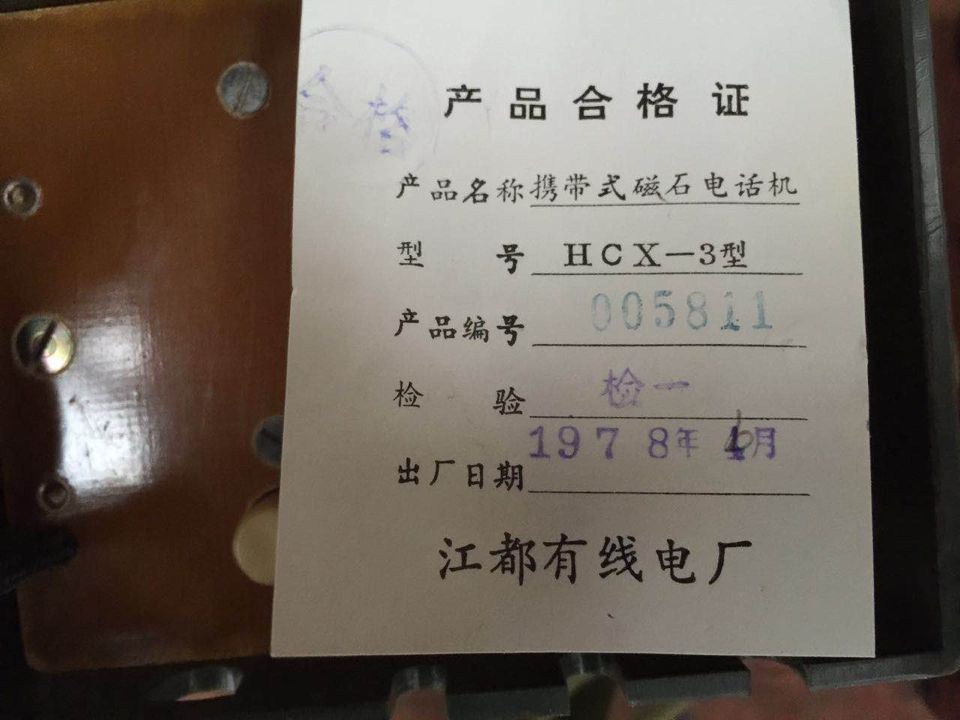 合格
产品合格证
产品名称 携带式磁石电话机
型号 HCX-3型
产品编号 005811
检验 检一
1978年 月
出厂日期
江都有线电厂